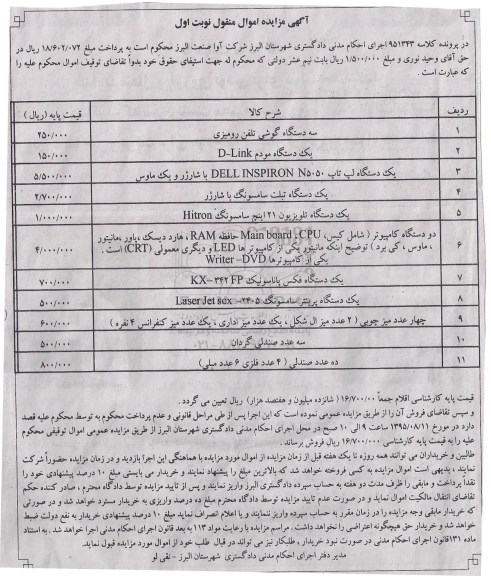 آگهی مزایده اموال منقول نوبت اول
در پرونده کلاسه ۹۵۱۳۴۳ اجرای احکام مدنی دادگستری شهرستان البرز شرکت آوا صنعت البرز محکوم است به پرداخت مبلغ ۱۸/۶۰۲/۰۷۲ ریال در
حق آقای وحید نوری و مبلغ ۱/۵۰۰/۰۰۰ ریال بابت نیم عشر دولتی که محکوم له جهت استیفای حقوق خود بدواً تقاضای توقیف اموال محکوم علیه را
که عبارت است .
ردیف شرح کالا قیمت پایه (ریال )
۱ سه دستگاه گوشی تلفن رومیزی ۲۵۰/۰۰۰
۲ یک دستگاه مودم D-Link ۱۵۰/۰۰۰
۳ یک دستگاه لپ تاپ DELL INSPIRON N۵۰۵۰ با شارژر و یک ماوس ۵/۵۰۰/۰۰۰
۴ یک دستگاه تبلت سامسونگ با شارژر ۲/۷۰۰/۰۰۰
۵ یک دستگاه تلویزیون ۲۱ اینچ سامسونگ Hitron ۱/۰۰۰/۰۰۰
۶ دو دستگاه کامپیوتر ( شامل کیس، Main board ، CPU حافظه RAM، هارد دیسک ،پاور ،مانیتور
، ماوس ، کی برد ) توضیح اینکه مانیتور یکی از کامپیوتر ها LED و دیگری معمولی (CRT) است .
یکی از کامپیوترها Writer –DVD ۴/۰۰۰/۰۰۰
۷ یک دستگاه فکس پاناسونیک KX–۳۴۲ FP ۷۰۰/۰۰۰
۸ یک دستگاه پرینتر سامسونگ Laser Jet sdx –۲۴۰۵ ۵۰۰/۰۰۰
۹ چهار عدد میز چوبی ( ۲ عدد میز ال شکل ، یک عدد میز اداری ، یک عدد میز کنفرانس ۴ نفره ) ۶۰۰/۰۰۰
۱۰ سه عدد صندلی گردان ۵۰۰/۰۰۰
۱۱ ده عدد صندلی ( ۴ عدد فلزی ۶ عدد مبلی) ۸۰۰/۰۰۰
قیمت پایه کارشناسی اقلام جمعاً ۱۶/۷۰۰/۰۰ ( شانزده میلیون و هفتصد هزار) ریال تعیین می گردد .
و سپس تقاضای فروش آن را از طریق مزایده عمومی نموده است که این اجرا پس از طی مراحل قانونی و عدم پرداخت محکوم به توسط محکوم علیه قصد
دارد در مورخ ۱۳۹۵/۰۸/۱۱ ساعت ۹ الی ۱۰ صبح در محل اجرای احکام مدنی دادگستری شهرستان البرز از طریق مزایده عمومی اموال توقیفی محکوم
علیه را به قیمت پایه کارشناسی ۱۶/۷۰۰/۰۰۰ ریال فروش برساند .
طالبین و خریداران می توانند همه روزه تا یک هفته قبل از زمان مزایده از اموال مورد مزایده با هماهنگی این اجرا بازدید و در زمان مزایده حضوراً شرکت
نمایند ، بدیهی است اموال مزایده به کسی فروخته خواهد شد که بالاترین مبلغ را پیشنهاد نمایند و خریدار می بایستی مبلغ ۱۰ درصد پیشنهادی خود را
نقداً پرداخت و مابقی را ظرف مدت دو هفته به حساب سپرده دادگستری البرز واریز نمایند و پس از تایید مزایده توسط دادگاه محترم ، صادر کننده حکم
تقاضای انتقال مالکیت اموال نماید و در صورت عدم تایید مزایده توسط دادگاه محترم مبلغ ده درصد واریزی به خریدار مسترد خواهد شد و در صورتی
که خریدار مابقی وجه مزایده را در زمان مقرر به حساب سپرده واریز ننمایند و یا اعلام انصراف نماید مبلغ ۱۰ درصد پیشنهادی خریدار به نفع دولت ضبط
خواهد شد و خریدار حق هیچگونه اعتراضی را نخواهد داشت . مراسم مزایده با رعایت مواد ۱۱۳ به بعد قانون اجرای احکام مدنی اجرا خواهد شد . به استناد
ماده ۱۳۱ قانون اجرای احکام مدنی در صورت نبود خریدار ، طلبکار نیز می تواند در قبال طلب خود از اموال مورد مزایده قبول نماید.
مدیر دفتر اجرای احکام مدنی دادگستری شهرستان البرز – نقی لو